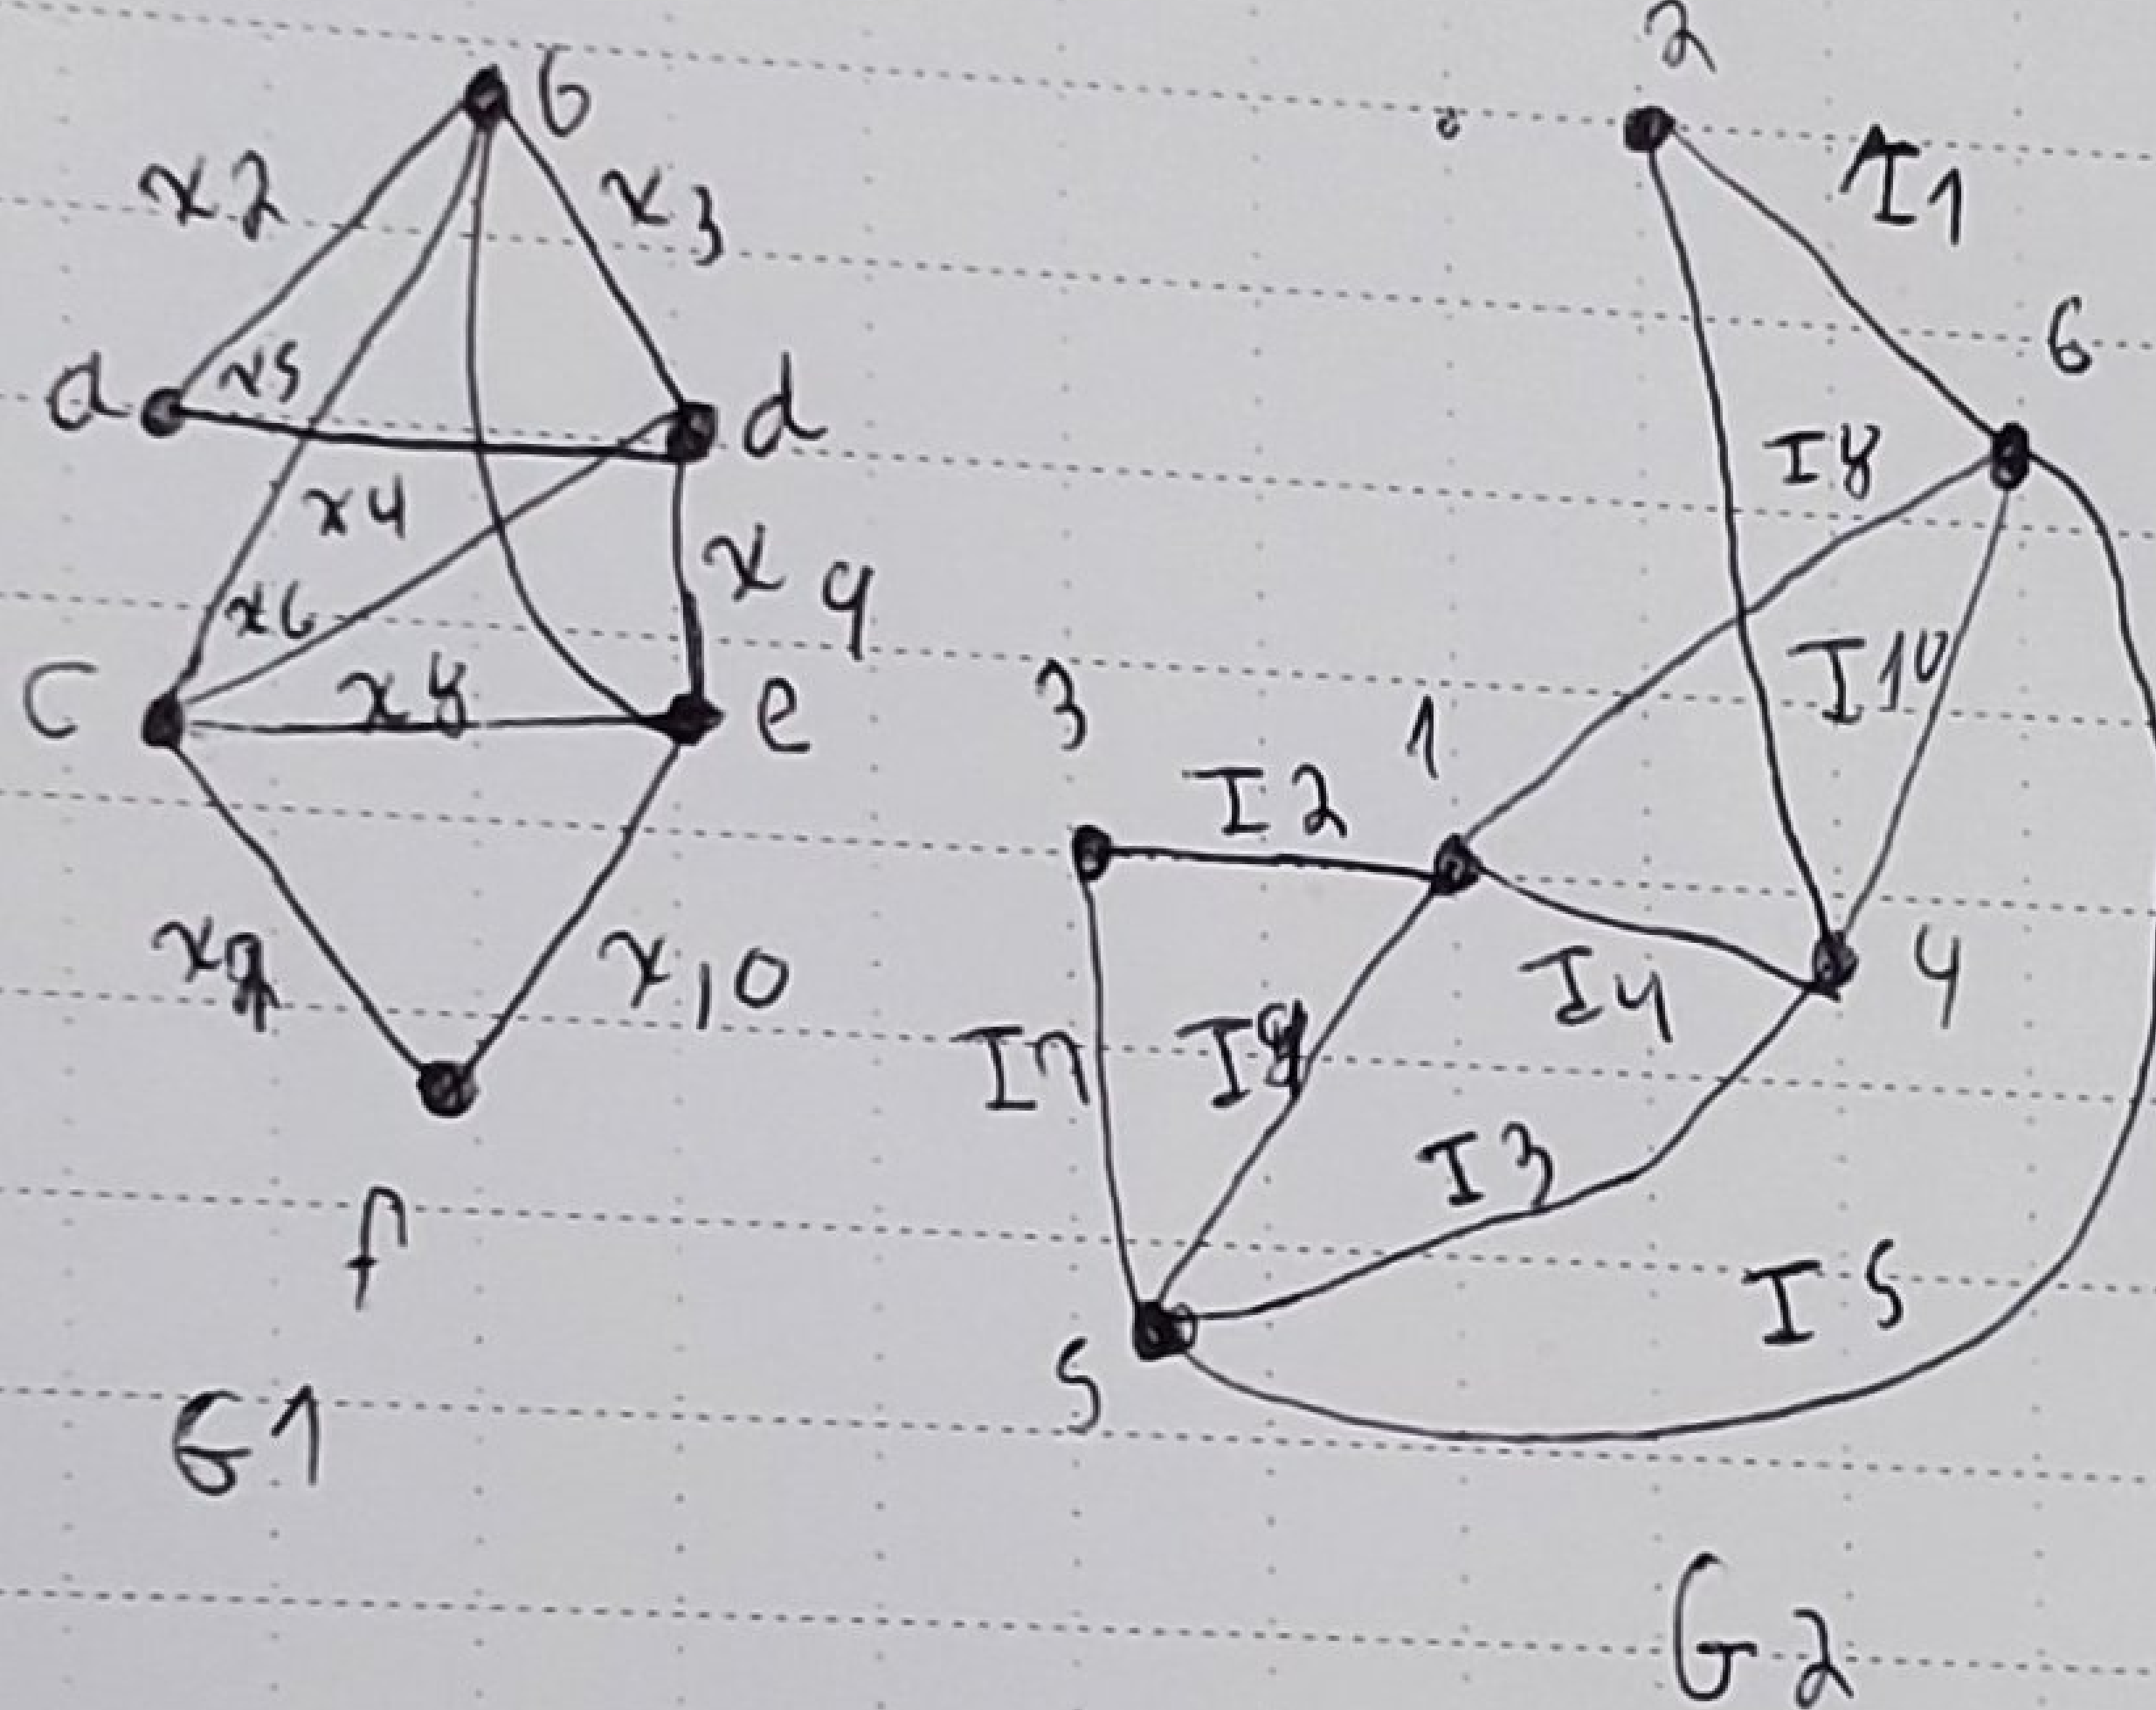 b
x2
x3
a
x5
d
x4
x9
x6
c
x8
e
x10
f
G1
2
I1
6
I8
I10
3
1
I2
4
I4
I7
I3
I5
5
G2